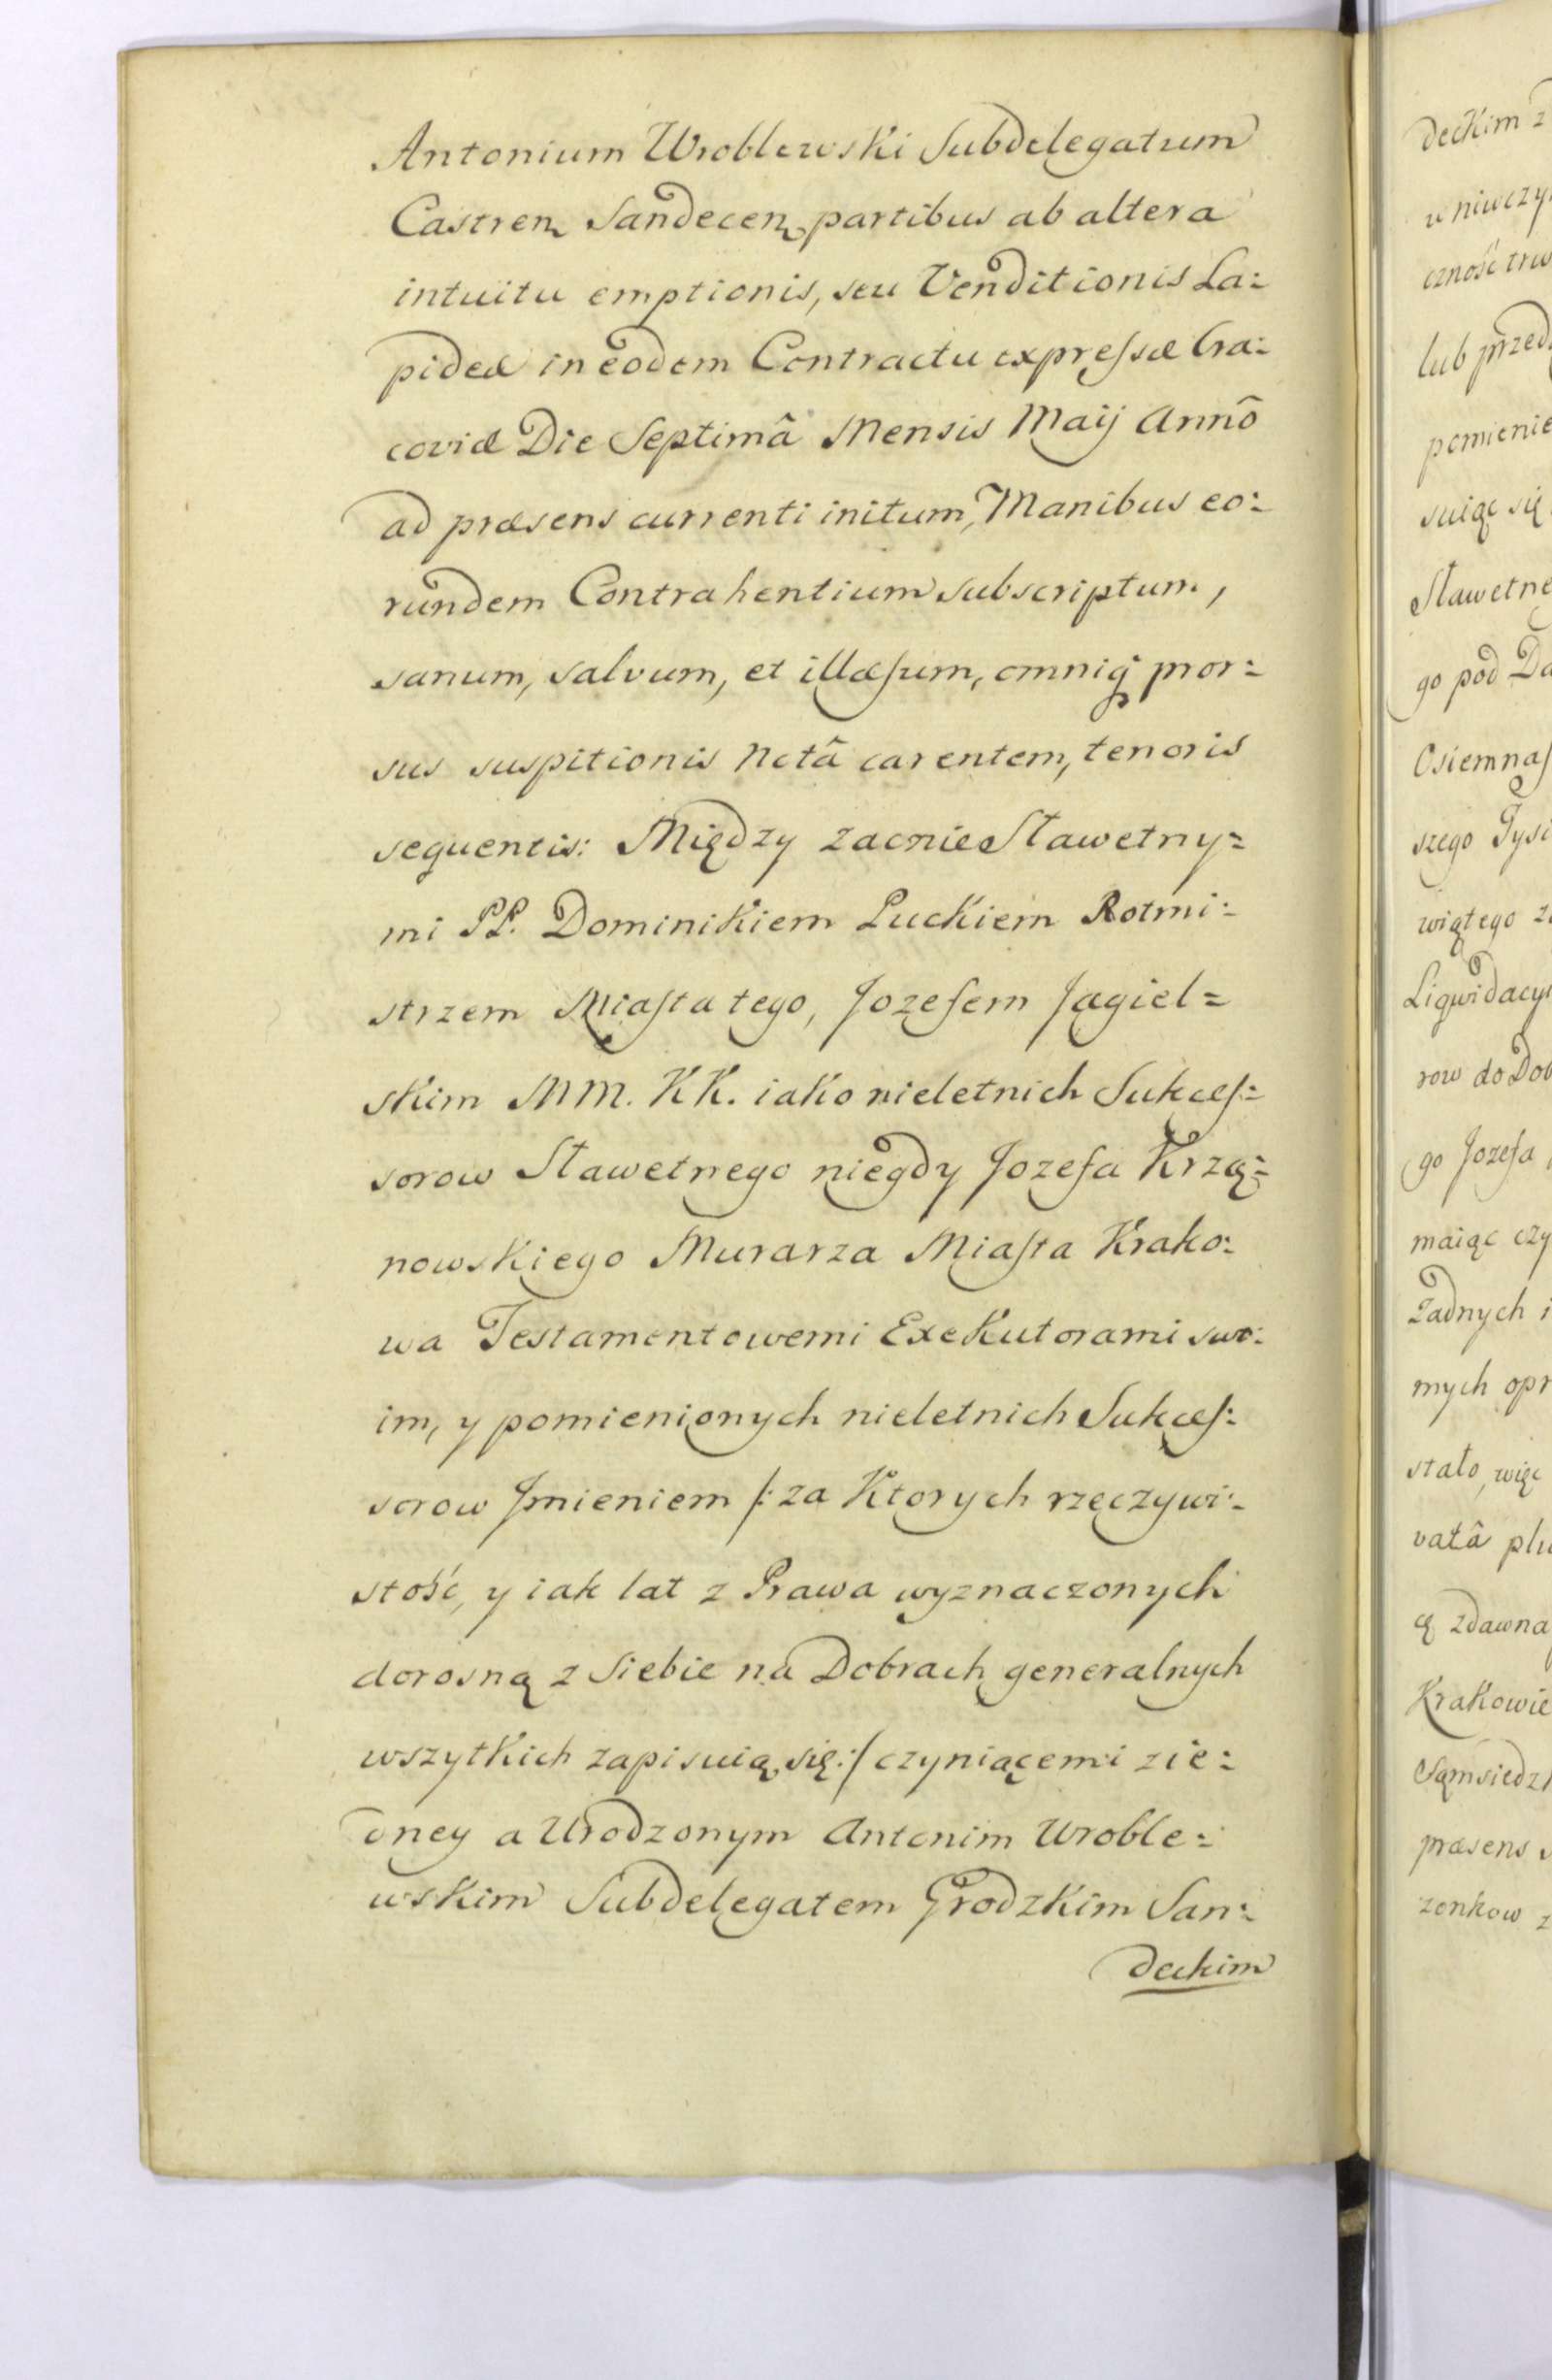 Antonium Wroblewski Subdelegatum
Castren Sandecen partibus ab altera
intuitu emptionis, seu Venditionis La:
pideæ in eodem Contractu expressæ Cra:
coviæ Die Septimâ Mensis Maij Annô
ad præsens currenti initum, Manibus eo:
rundem Contrahentium subscriptum,
sanum, salvum, et illæsum, omniq pror:
sus suspitionis notâ carentem, tenoris
sequentis: Między zacnie Sławetny=
mi PP. Dominikiem Puckiem Rotmi:
strzem Miasta tego, Jozefem Jagiel=
skim MM. KK. iako nieletnich Sukces:
sorow Sławetnego niegdy Jozefa Krzą=
nowskiego Murarza Miasta Krako:
wa Testamentowemi Exekutorami swo:
im, y pomienionych nieletnich Sukces:
sorow Jmieniem /: za Ktorych rzeczywi:
stość, y iak lat z Prawa wyznaczonych
dorosną z siebie na Dobrach generalnych
wszytkich zapisuią się :/ czyniącemi z ie:
dney a Urodzonym Antonim Wroble:
wskim Subdelegatem Grodzkim San:
deckim
deckim z
w niwczy
czność trw
lub przed
pomienie
suiąc się
Sławetne
go pod Da
Osiemnas
szego Tysi
wiątego z
Liqwidacyi
row do Dob
go Jozefa
maiąc czy
Żadnych i
mych opr
stało, więc
vatâ plu
cą zdawna
Krakowie
Sąmsiedz
præsens
zonkow z